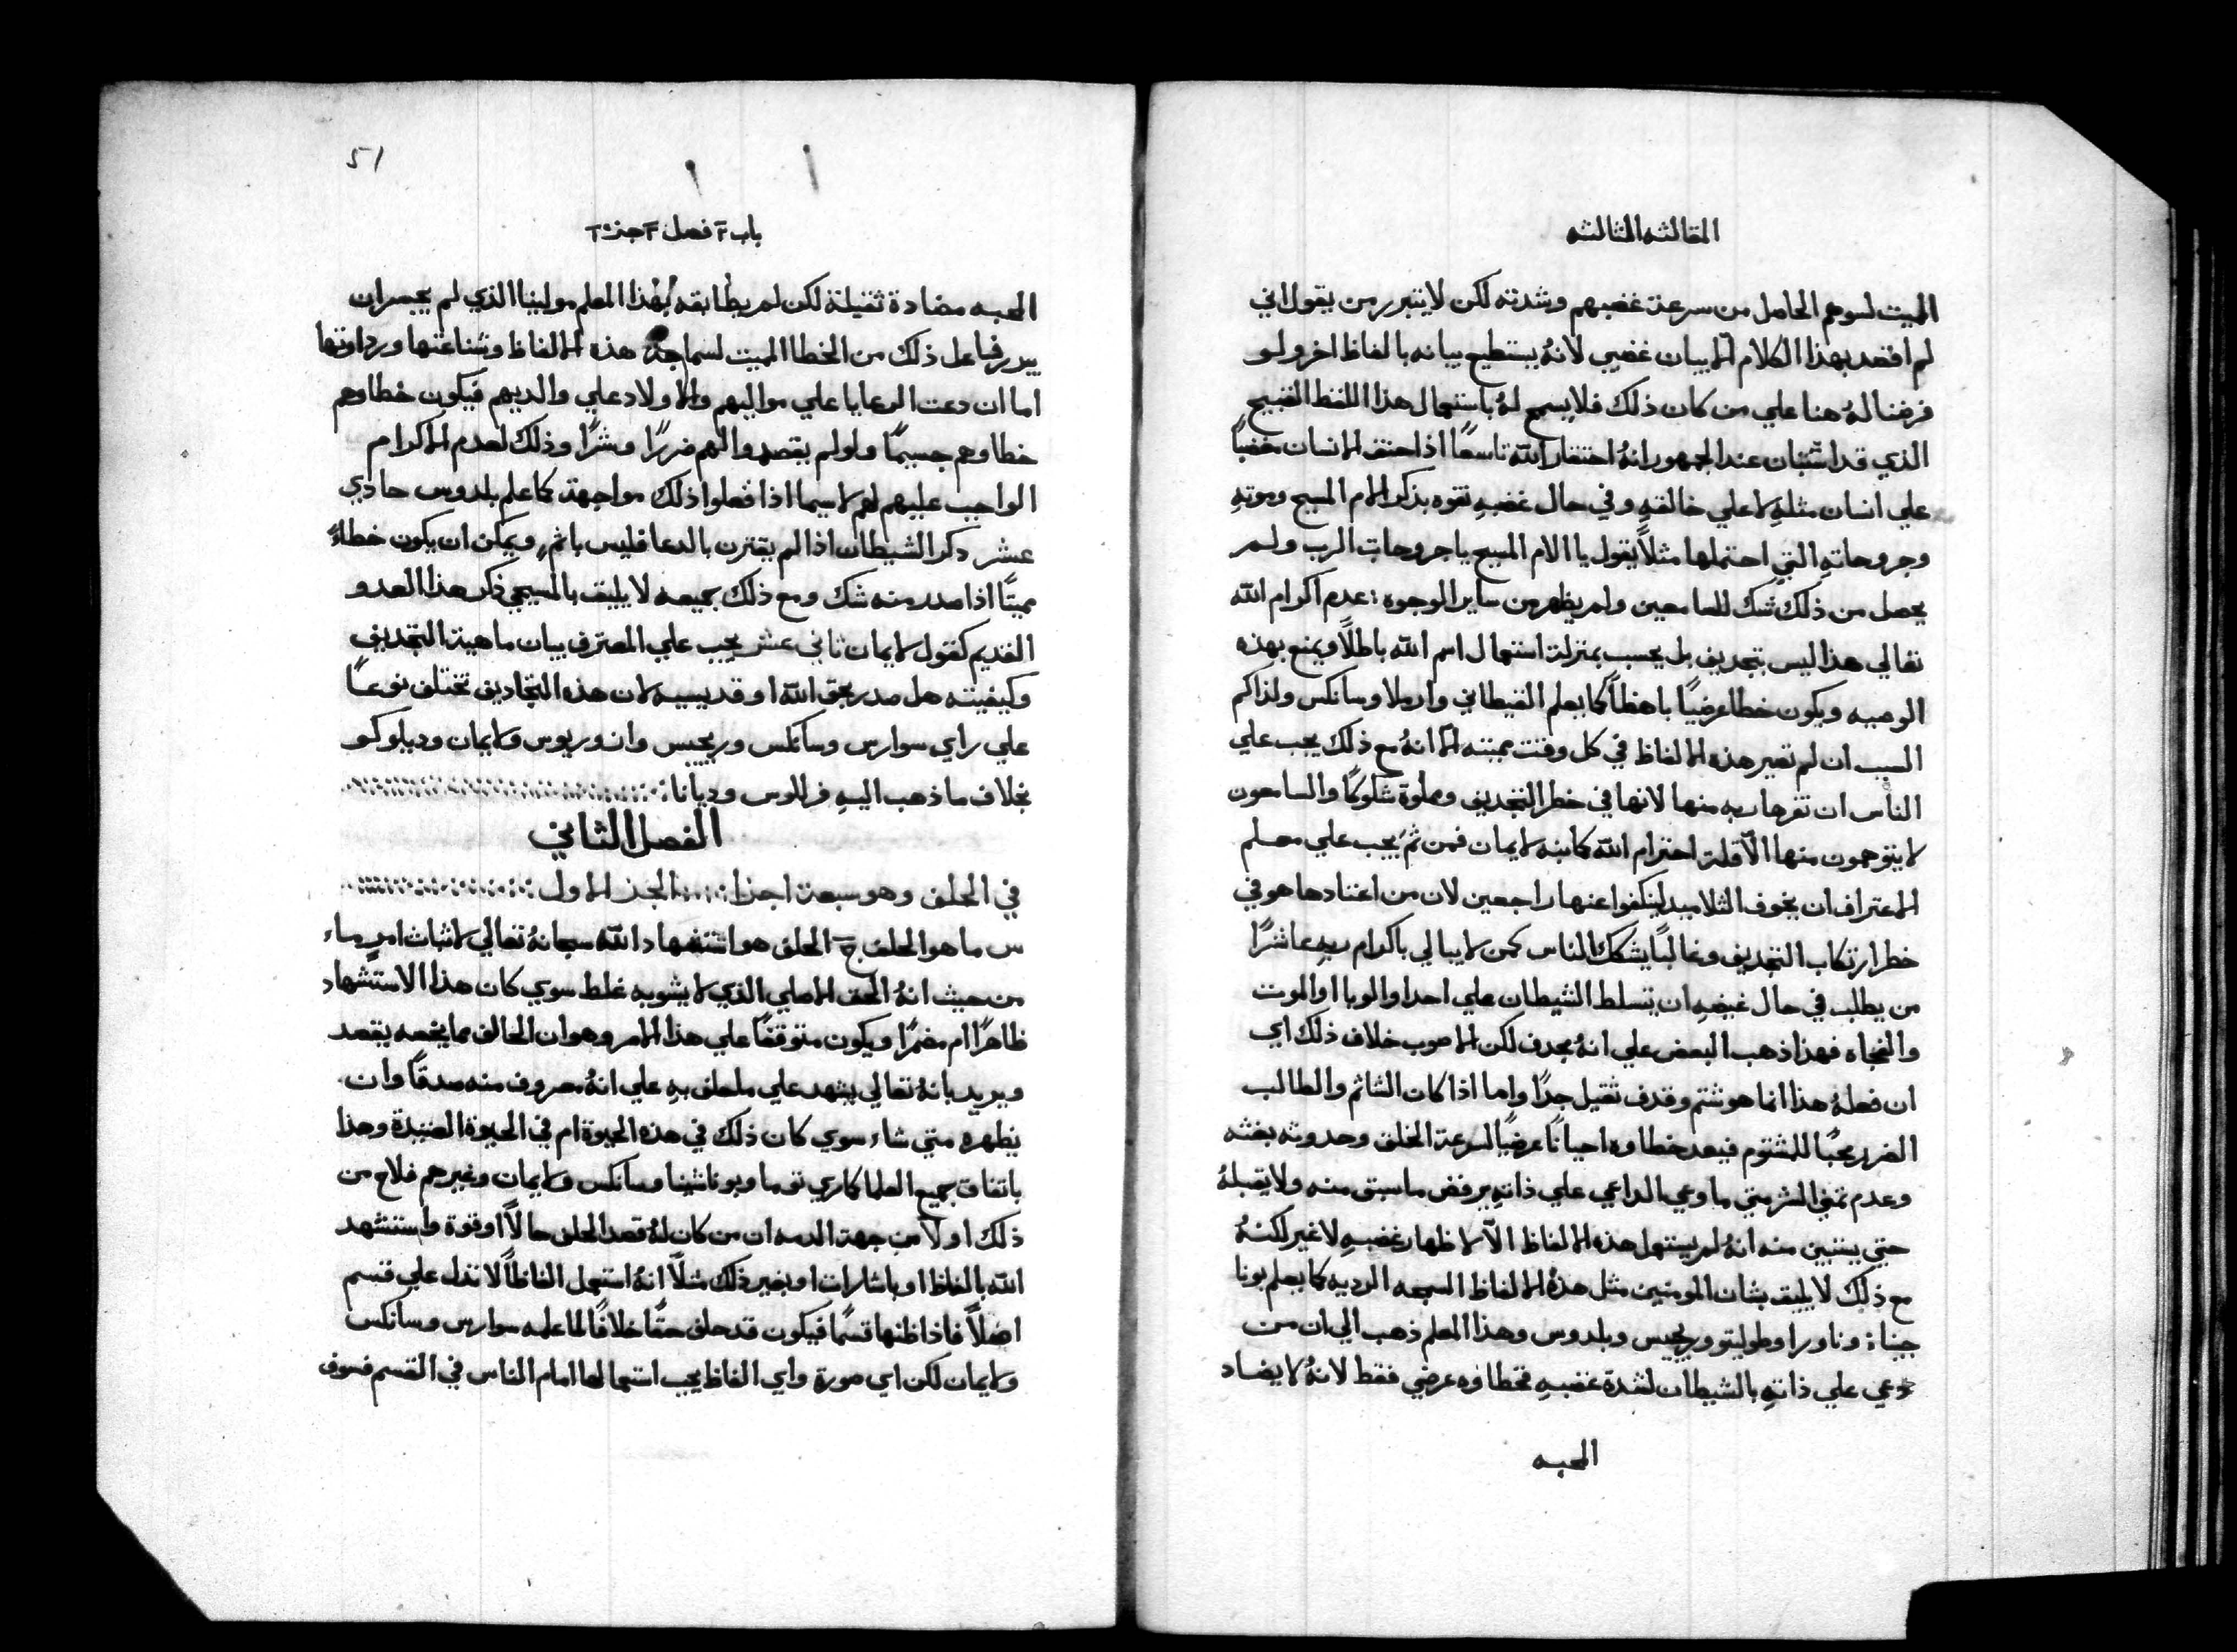 المقالثه الثالثه
الميت لسوهم الحاصل من سرعة غضبهم وشدته لكن لا يتبرر من يقول اني
لم اقصد بهذا الكلام الا بيان غضبي لانهُ يستطيع بيانه بالفاظ اخر ولو
فرضنا لهُ هنا علي من كان ذلك فلا يسمح لهُ باستعمال هذا اللفظ القبيح
الذي قد استبان عند الجمهور انهُ احتقار الله تاسعًا اذا احتف الانسان مغضبًا
علي انسان مثلهِ لا علي خالقهِ وفي حال غضبهِ تفوه بذكر الام المسيح وموتهِ
وجروحاتهِ التي احتملها مثلاً يقول يا الام المسيح يا جروحات الرب ولم
يحصل من ذلك شك للسامعين ولم يظهر من ساير الوجوه عدم اكرام الله
تعالي هذا ليس بتجديف بل يحسب بمنزلة استعمال اسم الله باطلاً ويمنع بهذه
الوصيه ويكون خطا عرضيًا باهظاً كما يعلم القيطاني وارملا وسانكس ولذاكم
السبب ان لم تصير هذه الالفاظ في كل وقت مميته الا انهُ مع ذلك يجب علي
الناس ان تفر هاربه منها لانها في خطر التجديف ومملوة شكوكًا والسامعون
لا يتوهمون منها الّا قلة احترام الله كانبه لايمان فمن ثَم يجب علي معلم
الاعتراف ان يخوف التلاميذ لينكفوا عنها راجعين لان من اعتادها هو في
خطر ارتكاب التجديف وغالبًا يشكك الناس كمن لا يبالي باكرام ربهِ عاشرًا
من يطلب في حال غيضهِ ان يتسلط الشيطان علي احد او الوبا او الموت
والفجاه فهذا ذهب البعض علي انهُ يجدف لكن الاصوب خلاف ذلك اي
ان فعلهُ هذا انما هو شتم وقدف ثقيل جدًا واما اذا كان الشاتم والطالب
الضرر محبًا للمشتوم فيعد خطاوه احيانًا عرضيًا لسرعة الخلق وحدوثه بغثه
وعدم تمني الشر متي ما وعي الداعي علي ذاتهِ يرفض ما سبق منه ولا يقبلهُ
حتي يتبين منه انهُ لم يستعمل هذه الالفاظ الّا لاظهار غضبهِ لا غير لكنهُ
مع ذلك لا يليق بشان المومنين مثل هذهُ الالفاظ السمجه الرديه كما يعلم بونا
جينا وناورا وطوليتو وريجيس وبلدوس وهذا المعلم ذهب الي ان من
دعي علي ذاتهِ بالشيطان لشدة غضبهِ فخطاوه عرضي فقط لانهُ لا يضاد
المحبه
51
باب ٢ فصل ٢ جز ٢
المحبه مضادة ثقيلة لكن لم يطابقه بهذا المعلم مولينا الذي لم يجسر ان
يبرر فاعل ذلك من الخطا المميت لسماجة هذه الالفاظ وشناعتها ورداوتها
اما ان دعت الرعايا علي مواليهم والاولاد علي والديهم فيكون خطاوهم
خطاوهم جسيمًا ولو لم يقصدوا لهم ضررًا وشرًا وذلك لعدم الاكرام
الواجب عليهم لهم لا سيما اذا فعلوا ذلك مواجهة كما علم بلدوس حادي
عشر دكر الشيطان اذا لم يقترن بالدعا فليس باثم ويمكن ان يكون خطاءً
مميتًا اذا صدر منه شك ومع ذلك جميعه لا يليق بالمسيحي ذكر هذا العدو
القديم كقول لايمان ثاني عشر يجب علي المعترف بيان ماهية التجديف
وكيفيته هل صدر بحق الله او قديسيه لان هذه التجاديف تختلف نوعًا
علي راي سوارس وسانكس وريجيس وانوريوس ولايمان وديلوكو
بخلاف ما ذهب اليهِ فرللوس وديانا
الفصل الثاني
في الحلف وهو سبعة اجزا الجذ الاول
س ما هو الحلف ج الحلف هو استشهاد الله سبحانهُ تعالي لاثبات امرٍ ما
من حيث انهُ الحق الاصلي الذي لا يشوبه غلط سوي كان هذا الاستشهاد
ظاهرًا ام مضمرًا ويكون متوقفًا علي هذا الامر وهو ان الحالف مما يخصه يقصد
ويريد بانهُ تعالي يشهد علي ما حلف بهِ علي انهُ معروف منه صدقًا وان
يظهره متي شاء سوي كان ذلك في هذه الحيوة ام في الحيوة العتيدة وهذا
باتفاق جميع العلما كاري توما وبوناشينا وسانكس ولايمان وغيرهم فلاح من
ذلك اولاً من جهة الدمه ان من كان لهُ قصد الحلف حالاً او قوة واستشهد
الله بالفاظ او باشارات او بغير ذلك مثلاً انهُ استعمل الفاظاً لا تدل علي قسم
اصلاً فاذا ظنها قسمًا فيكون قد حلف حقًا خلافًا لما علمه سوارس وسانكس
ولايمان لكن اي صورة واي الفاظ يجب استعمالها امام الناس في القسم فسوف